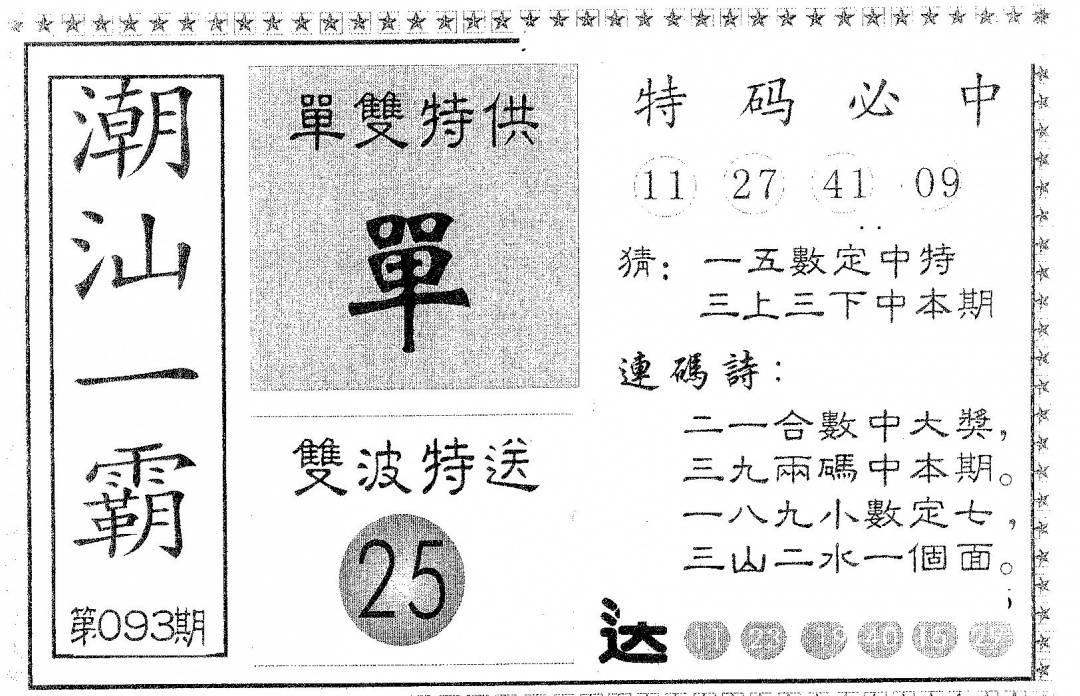 潮汕一霸
第093期
單雙特供
單
雙波特送
25
特码必中
11 27 41 09
猜：一五數定中特
三上三下中本期
連碼詩：
二一合數中大獎，
三九兩碼中本期。
一八九小數定七，
三山二水一個面。
送 11 23 19 40 15